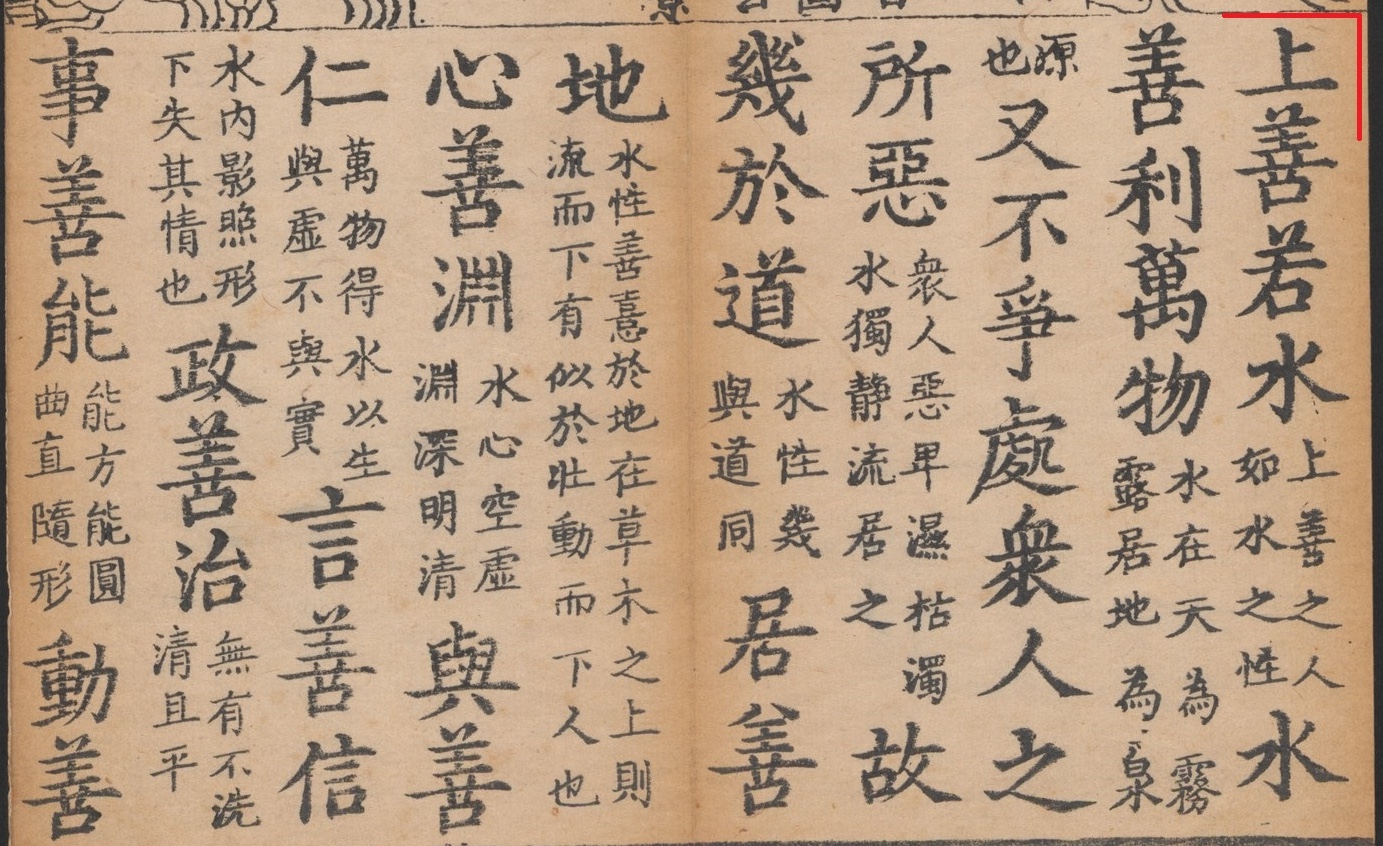 上善若水上善之人如水之性水
善利萬物水在天為霧露居地為泉
源也又不爭處衆人之
所惡衆人惡卑濕枯濁水獨静流居之故
幾於道水性幾與道同居善
地水性善憙於地在草木之上則流而下有似於壯動而下人也
心善淵水心空虛淵深明清與善
仁萬物得水以生與虛不與實言善信
水内影照形下失其情也政善治無有不洗清且平
事善能能方能圓曲直隨形動善